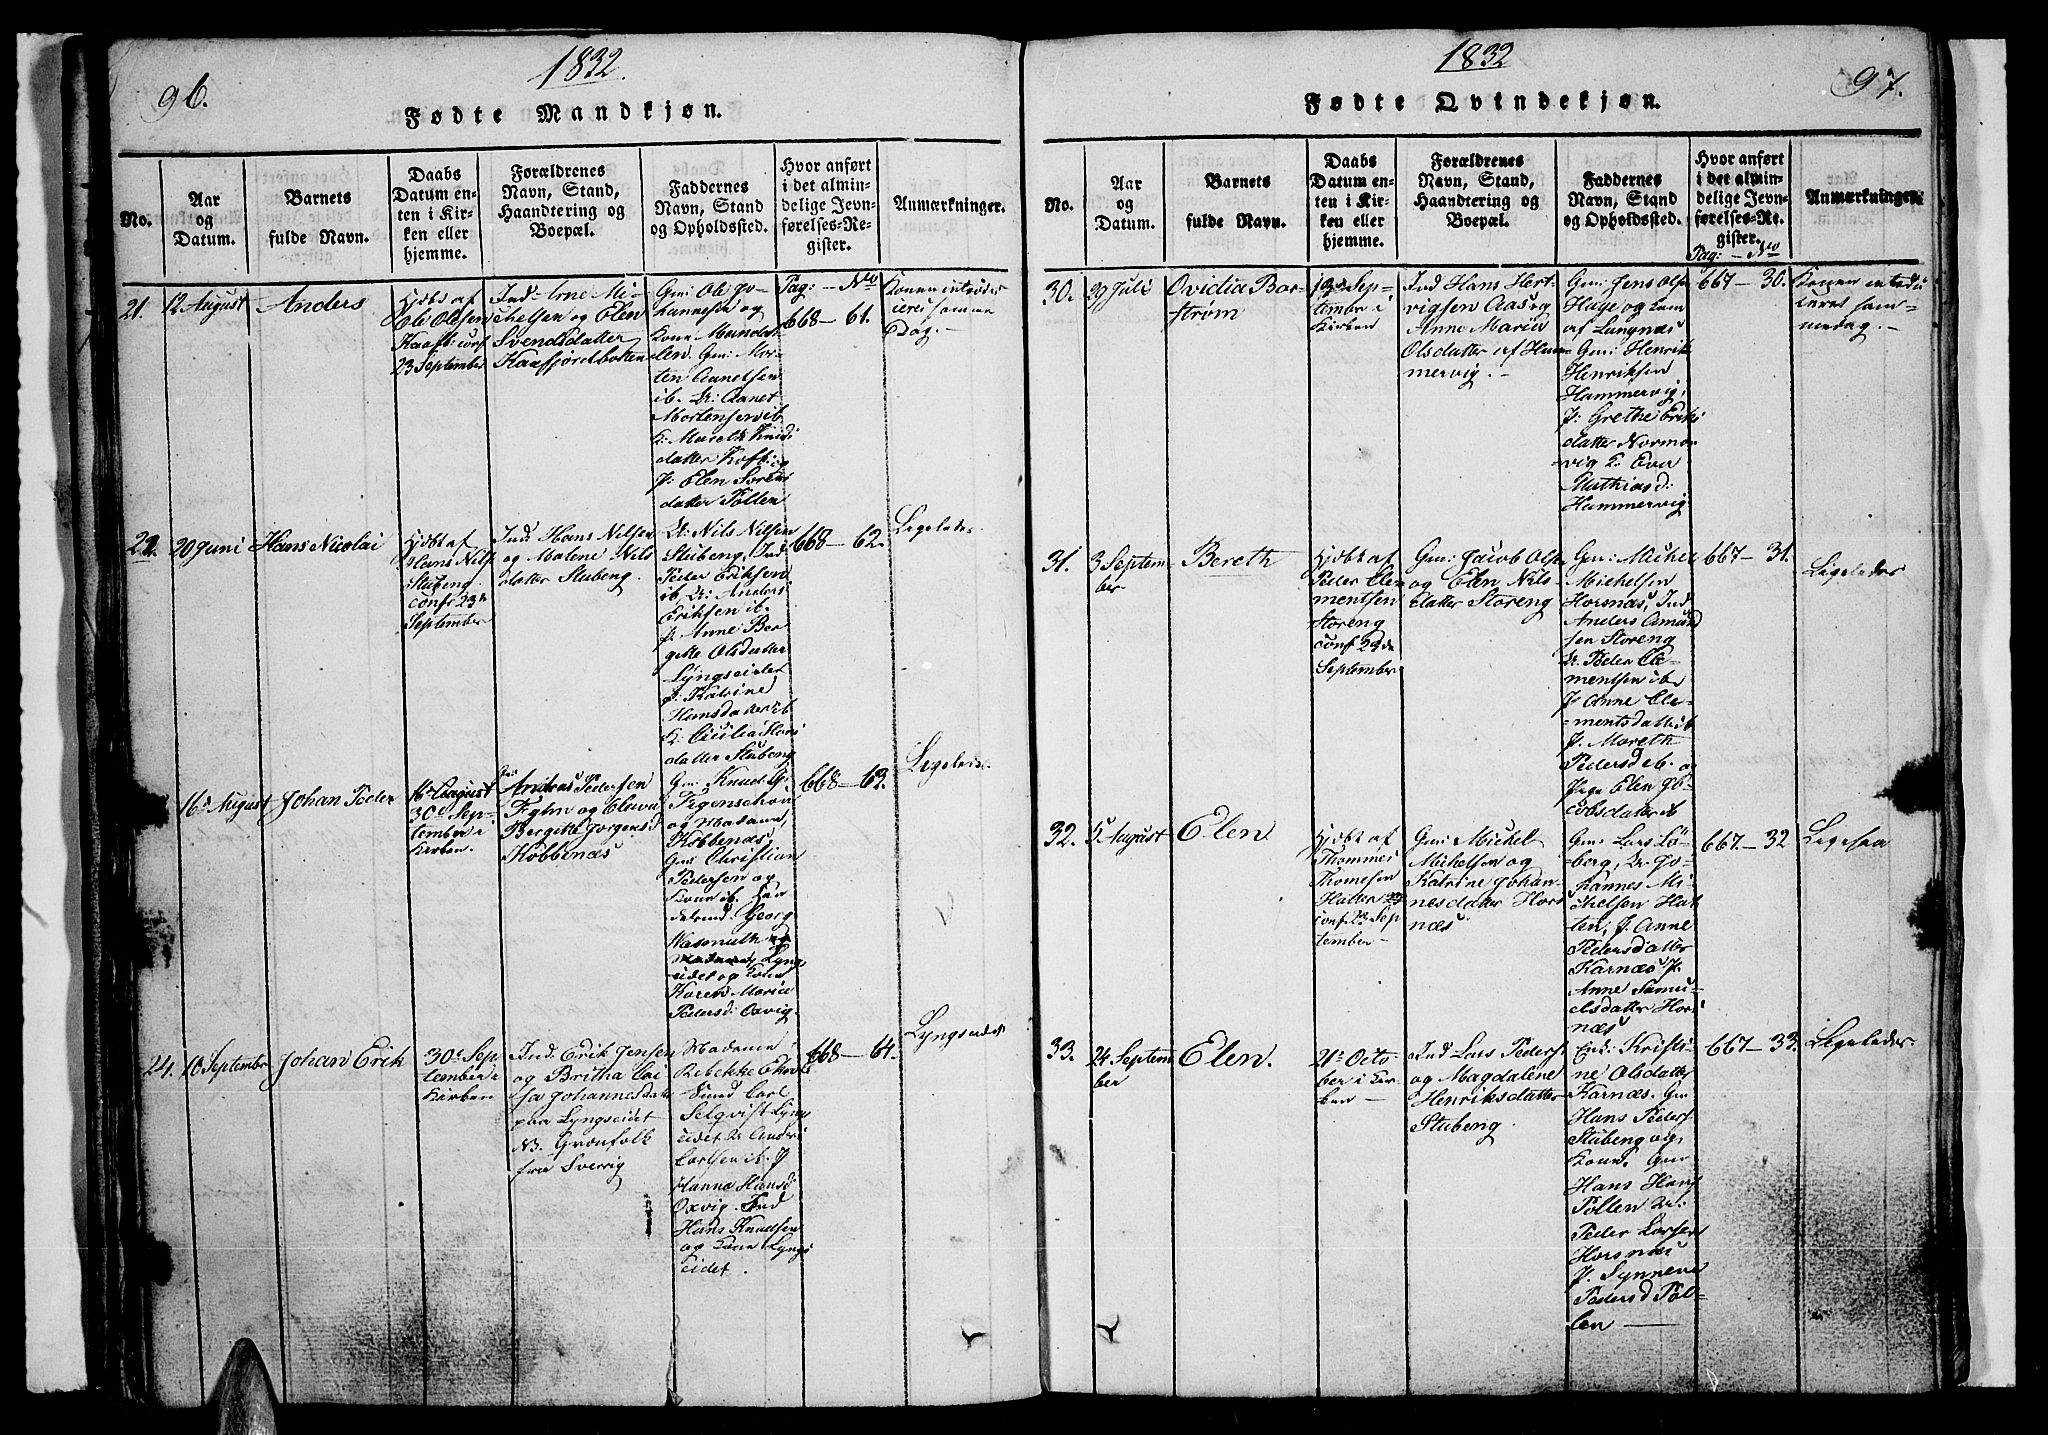 96.
1832.
Fødte Mandkjøn.
No.
Aar
og
Datum.
Barnets
fulde Navn.
Daabs
Datum en-
ten i Kir-
ken eller
hjemme.
Forældrenes
Navn, Stand,
Haandtering og
Boepæl.
Faddernes
Navn, Stand
og Opholdssted.
Hvor anført
i det almin-
delige Jevn-
førelses-Re-
gister.
Anmærkninger.
21.
12 August
Anders
Hjdbt af
Ole Olsen
Kaafi: conf
23 September
Ind. Arne Mi-
chelsen og Elen
Svendsdatter
Kaafjordbotten
Gm: Ole Jo-
hannesen og
Kone
Gm: Mor-
ten Aanetsen
ib. Dr: Aanet
Mortensen ib
K: Mareth Knuds
datter
P: Elen Sørens
datter Pollen
Pag: — No
668 — 61.
Konen introdu
ceret samme
Dag. —
22.
20 Juni
Hans Nicolai
Hjdbt af
Hans Nils
Stubeng
conf 23de
September
Ind: Hans Nilsen
og Malene Nils
datter Stubeng.
Dr: Nils Nilsen
Stubeng, Ind
Peder Eriksen
ib. Dr: Anders
Eriksen ib.
P: Anne Ber
gitte Olsdatter
Lyngseidet
P: Katrine
Hansdatter ib
K: Cicilia Hans
datter Stubeng
668 — 62.
Ligeledes
16 August
Johan Peder
30d Sep-
tember i
Kirken.
Andreas Pedersen
Fyhn og Oleva
Bergitte Jørgensd
Kobbenæs
Gm: Knud G.
Figenschou
og Madame,
Kobbenæs,
Gm: Christian
Pedersen og
Kone ib. Han
delsmd. Georg
Wasmuth og
Lyngs
eidet og Kone
Karen Maria
Pedersd: Oxvig.
668 — 63.
Ligeledes
24.
10 September
Johan Erik
30d Sep
tember i
Kirken
Ind: Erik Jensen
og Britha Cai
sa Johannesdat
paa Lyngseidet
NB. Grønfolk
fra Sverrig
Madame
Rebekke Ekor
Sund Carl
Selqvist Lyngs
eidet Dr Andri
Carlsen ib. P
Hanna Hansd
Oxvig. Ind
Hans Knudsen
og Kone Lyngs
eidet.
668 — 64.
Lyngseidet
1832
97.
Fødte Qvindekjøn.
No.
Aar
og
Datum.
Barnets
fulde Navn.
Daabs
Datum en-
ten i Kir-
ken eller
hjemme.
Forældrenes
Navn, Stand,
Haandtering og
Boepæl.
Faddernes
Navn, Stand
og Opholdssted.
Hvor anført
i det almin-
delige Jevn-
førelses-Re-
gister.
Pag: — No
Anmærkninger.
30.
29 Juli
Ovidia Bor-
strøm
Sep-
tember i
Kirken
Ind Hans Hert
vigsen Aas og
Anne Maria
Olsdatter af Ham
mervig. —
Gm: Jens Ols
Hage og Kone
af Lungnæs
Gm: Henrik
Henriksen
Hammervig,
P: Grethe Eriks
datter Norme
vig K. Eva
Mathiasd:
Hammervig
667 — 30.
Konen introdu
ceret sam-
medag. —
31.
3 Septem
ber
Bereth
Hjdbt af
Peder Cle
mentsen
Storeng
conf 23de
September
Gm: Jacob Ols
og Elen Nils
datter Storeng
Gm: Michel
Michelsen
Horsnæs, Ind
Anders Amund
sen Storeng
Dr. Peder Cle-
mentsen ib
P Anne Cle-
mentsdatter ib
P. Mareth
Pedersd ib. og
Pige Elen Ja-
cobsdatter ib
667 — 31.
Ligeledes
32.
5 August
Elen
Hjdbt af
Thommes
Thomesen
Hatten
conf 23 Sep
tember —
Gm: Michel
Michelsen og
Katrine Johan-
nesdatter Hors
næs
Gm: Lars Lø-
berg, Dr. Jo-
hannes Mi-
chelsen Hat
ten, P. Anne
Pedersdatter
Karnæs P.
Anne Samu-
elsdatter Hors
næs
667. — 32
Ligesaa
33.
24 Septem
ber
Elen.
21d Octo-
ber i Kir-
ken —
Ind Lars Peders
og Magdalene
Henriksdatter
Stubeng
Enk: Kristi-
ne Olsdatter
Karnæs. Gm
Hans Peders
Stubeng og
Kone. Gm
Hans Hans
Pollen Dr.
Peder Larsen
Horsnæs
P. Synneve
Pedersd Pol-
len —
667 — 33.
Ligeledes